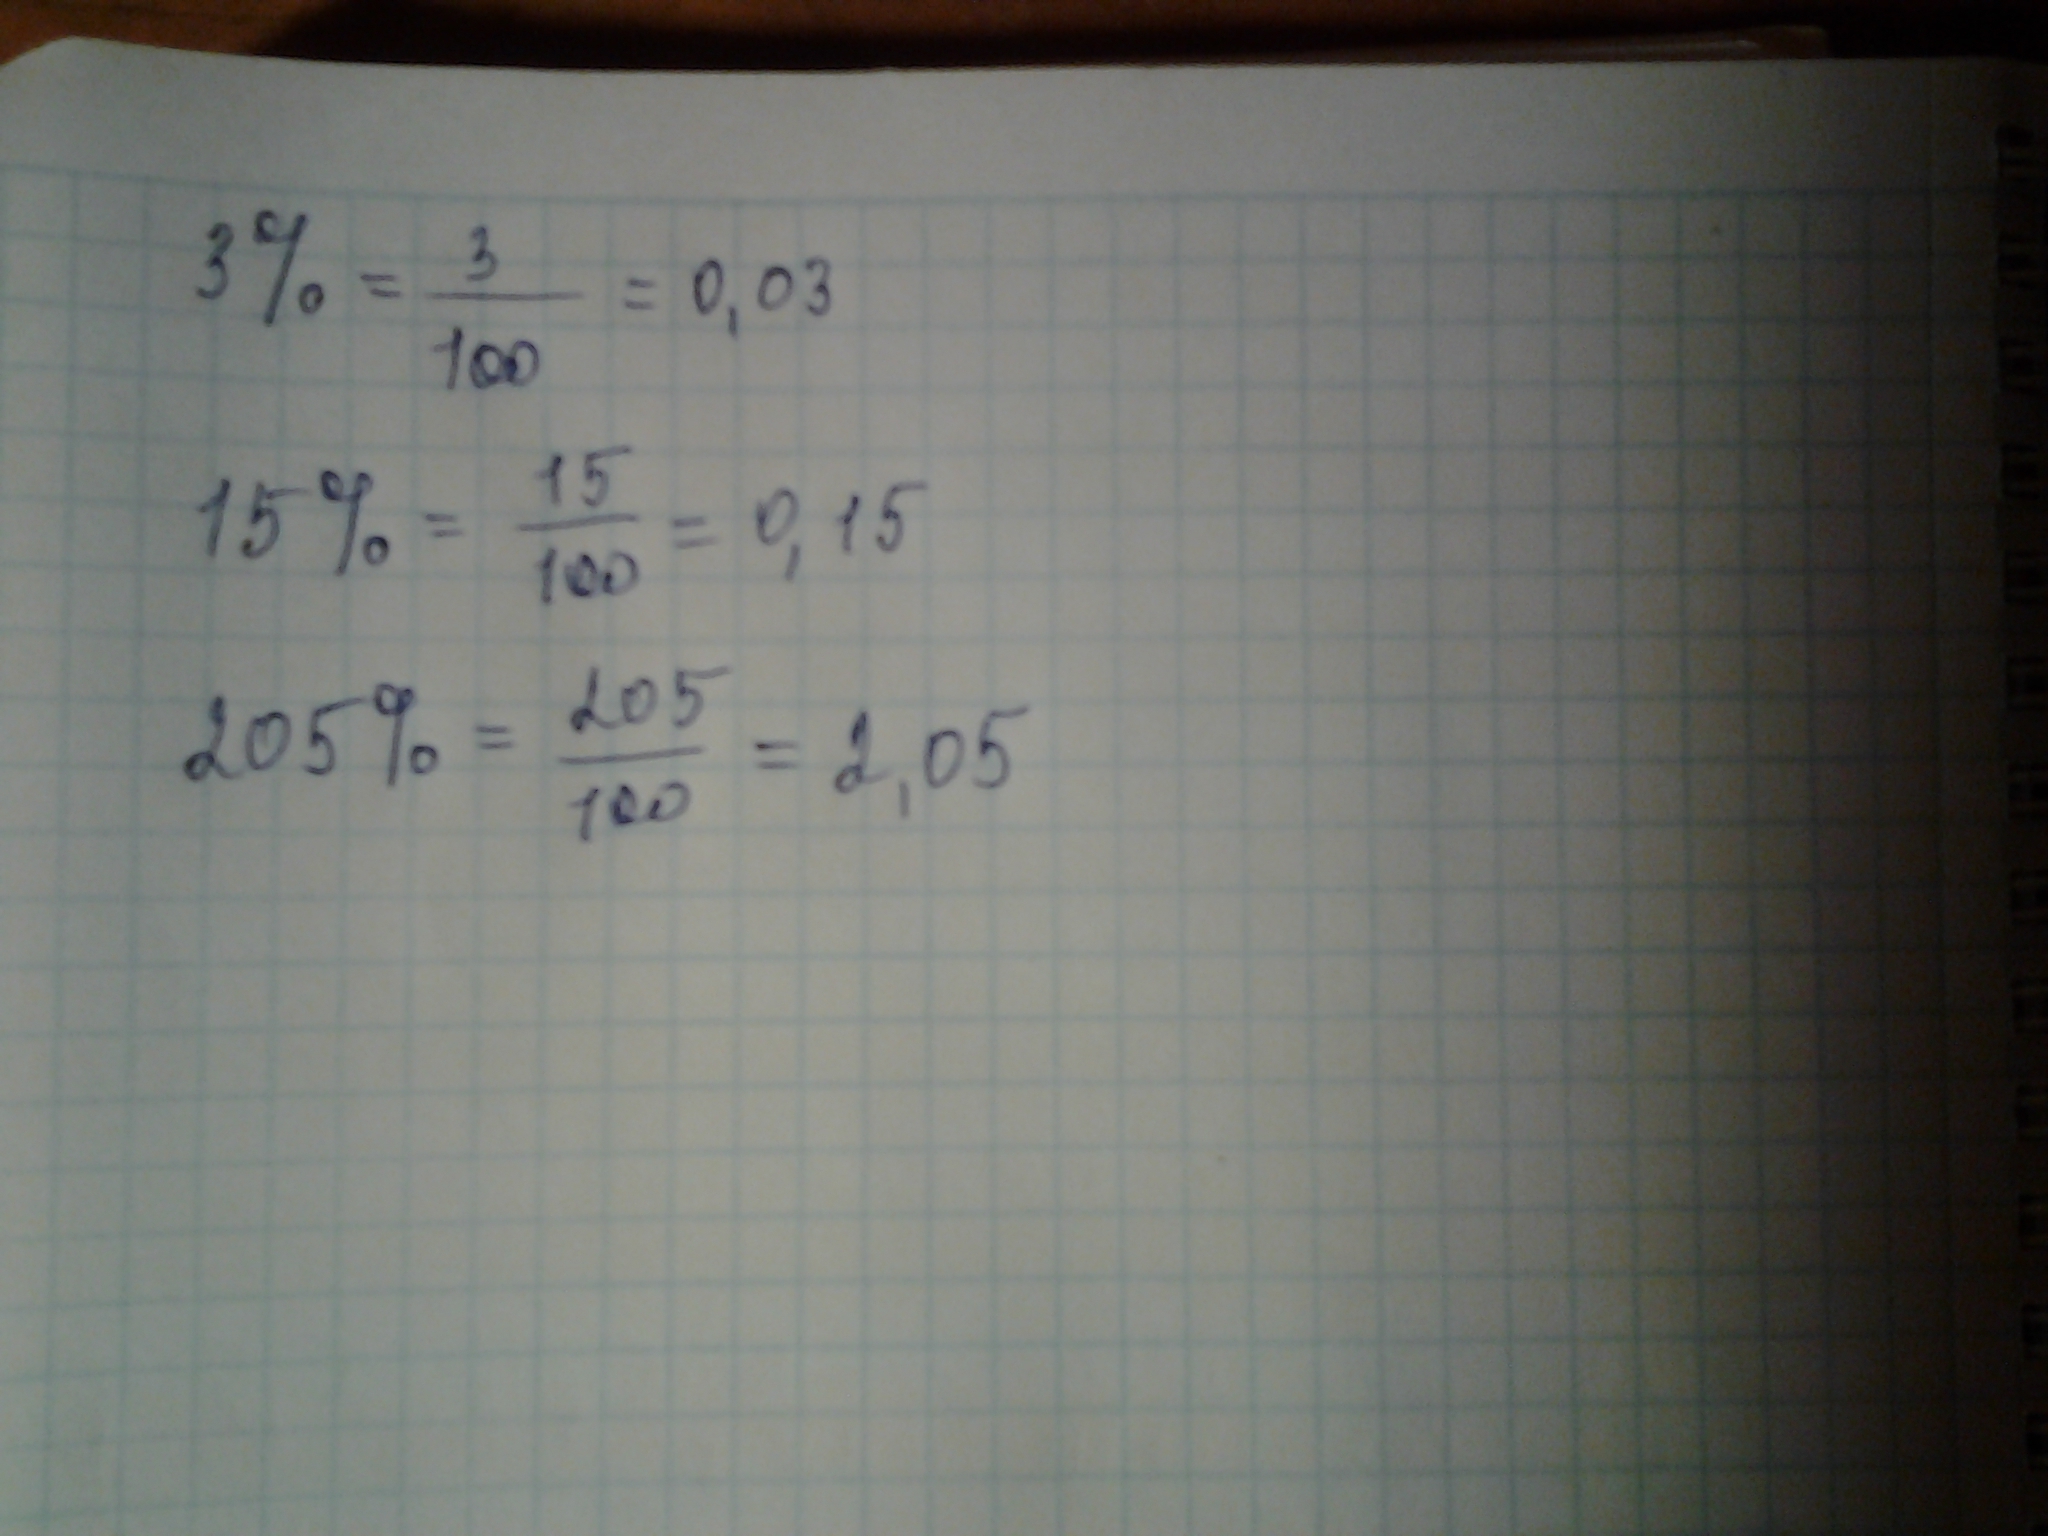 3% = 3/100 = 0,03
15% = 15/100 = 0,15
205% = 205/100 = 2,05